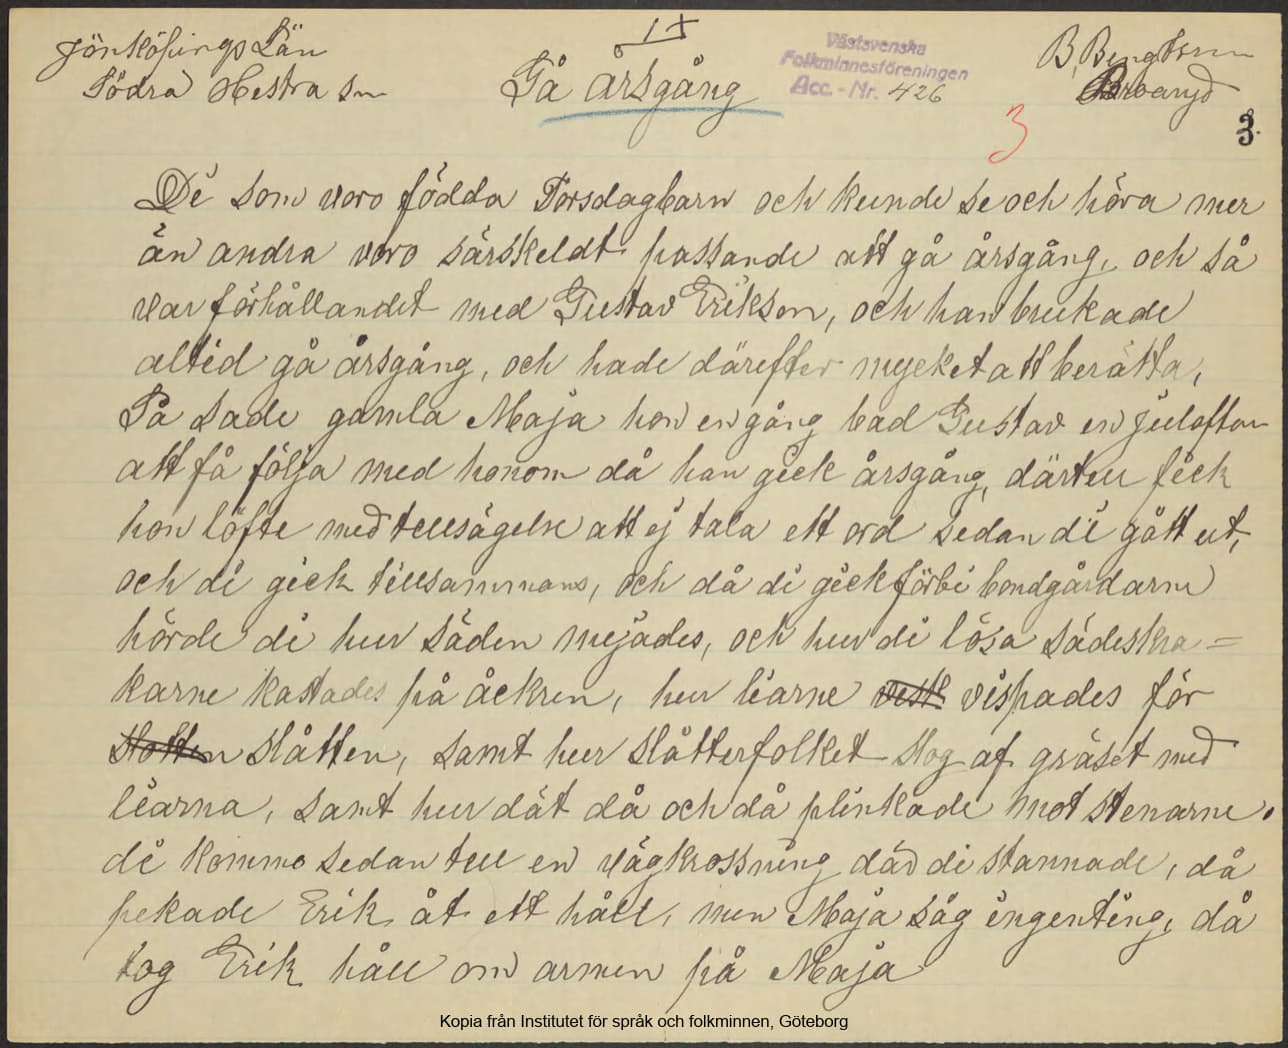 Jönköpings Län
Södra Hestra sn
IX
Gå årsgång
Västsvenska
Folkminnesföreningen
Acc. - Nr. 426
B. Bengtsson
3
3.
De som voro födda Torsdagbarn och kunde se och höra mer
än andra voro särskeldt passande att gå årsgång, och så
var förhållandet med Gustav Erikson, och han brukade
altid gå årsgång, och hade därefter mycket att berätta,
Så sade gamla Maja hon en gång bad Gustav en julafton
att få följa med honom då han geck årsgång, därtell feck
hon löfte med tellsägelse att ej tala ett ord sedan di gått ut,
och di geck tillsammans, och då di geck förbi bondgårdarne
hörde di hur säden mejades, och hur di lösa sädeskra=
karne kastades på åckren, hur liarne vispades för
slåtten, samt hur slåtterfolket slog af gräset med
liarna, samt hur dät då och då plinkade mot stenarne.
di kommo sedan tell en vägkrossning där di stannade, då
pekade Erik åt ett håll, men Maja såg ingenting, då
tog Erik håll om armen på Maja
Kopia från Institutet för språk och folkminnen, Göteborg